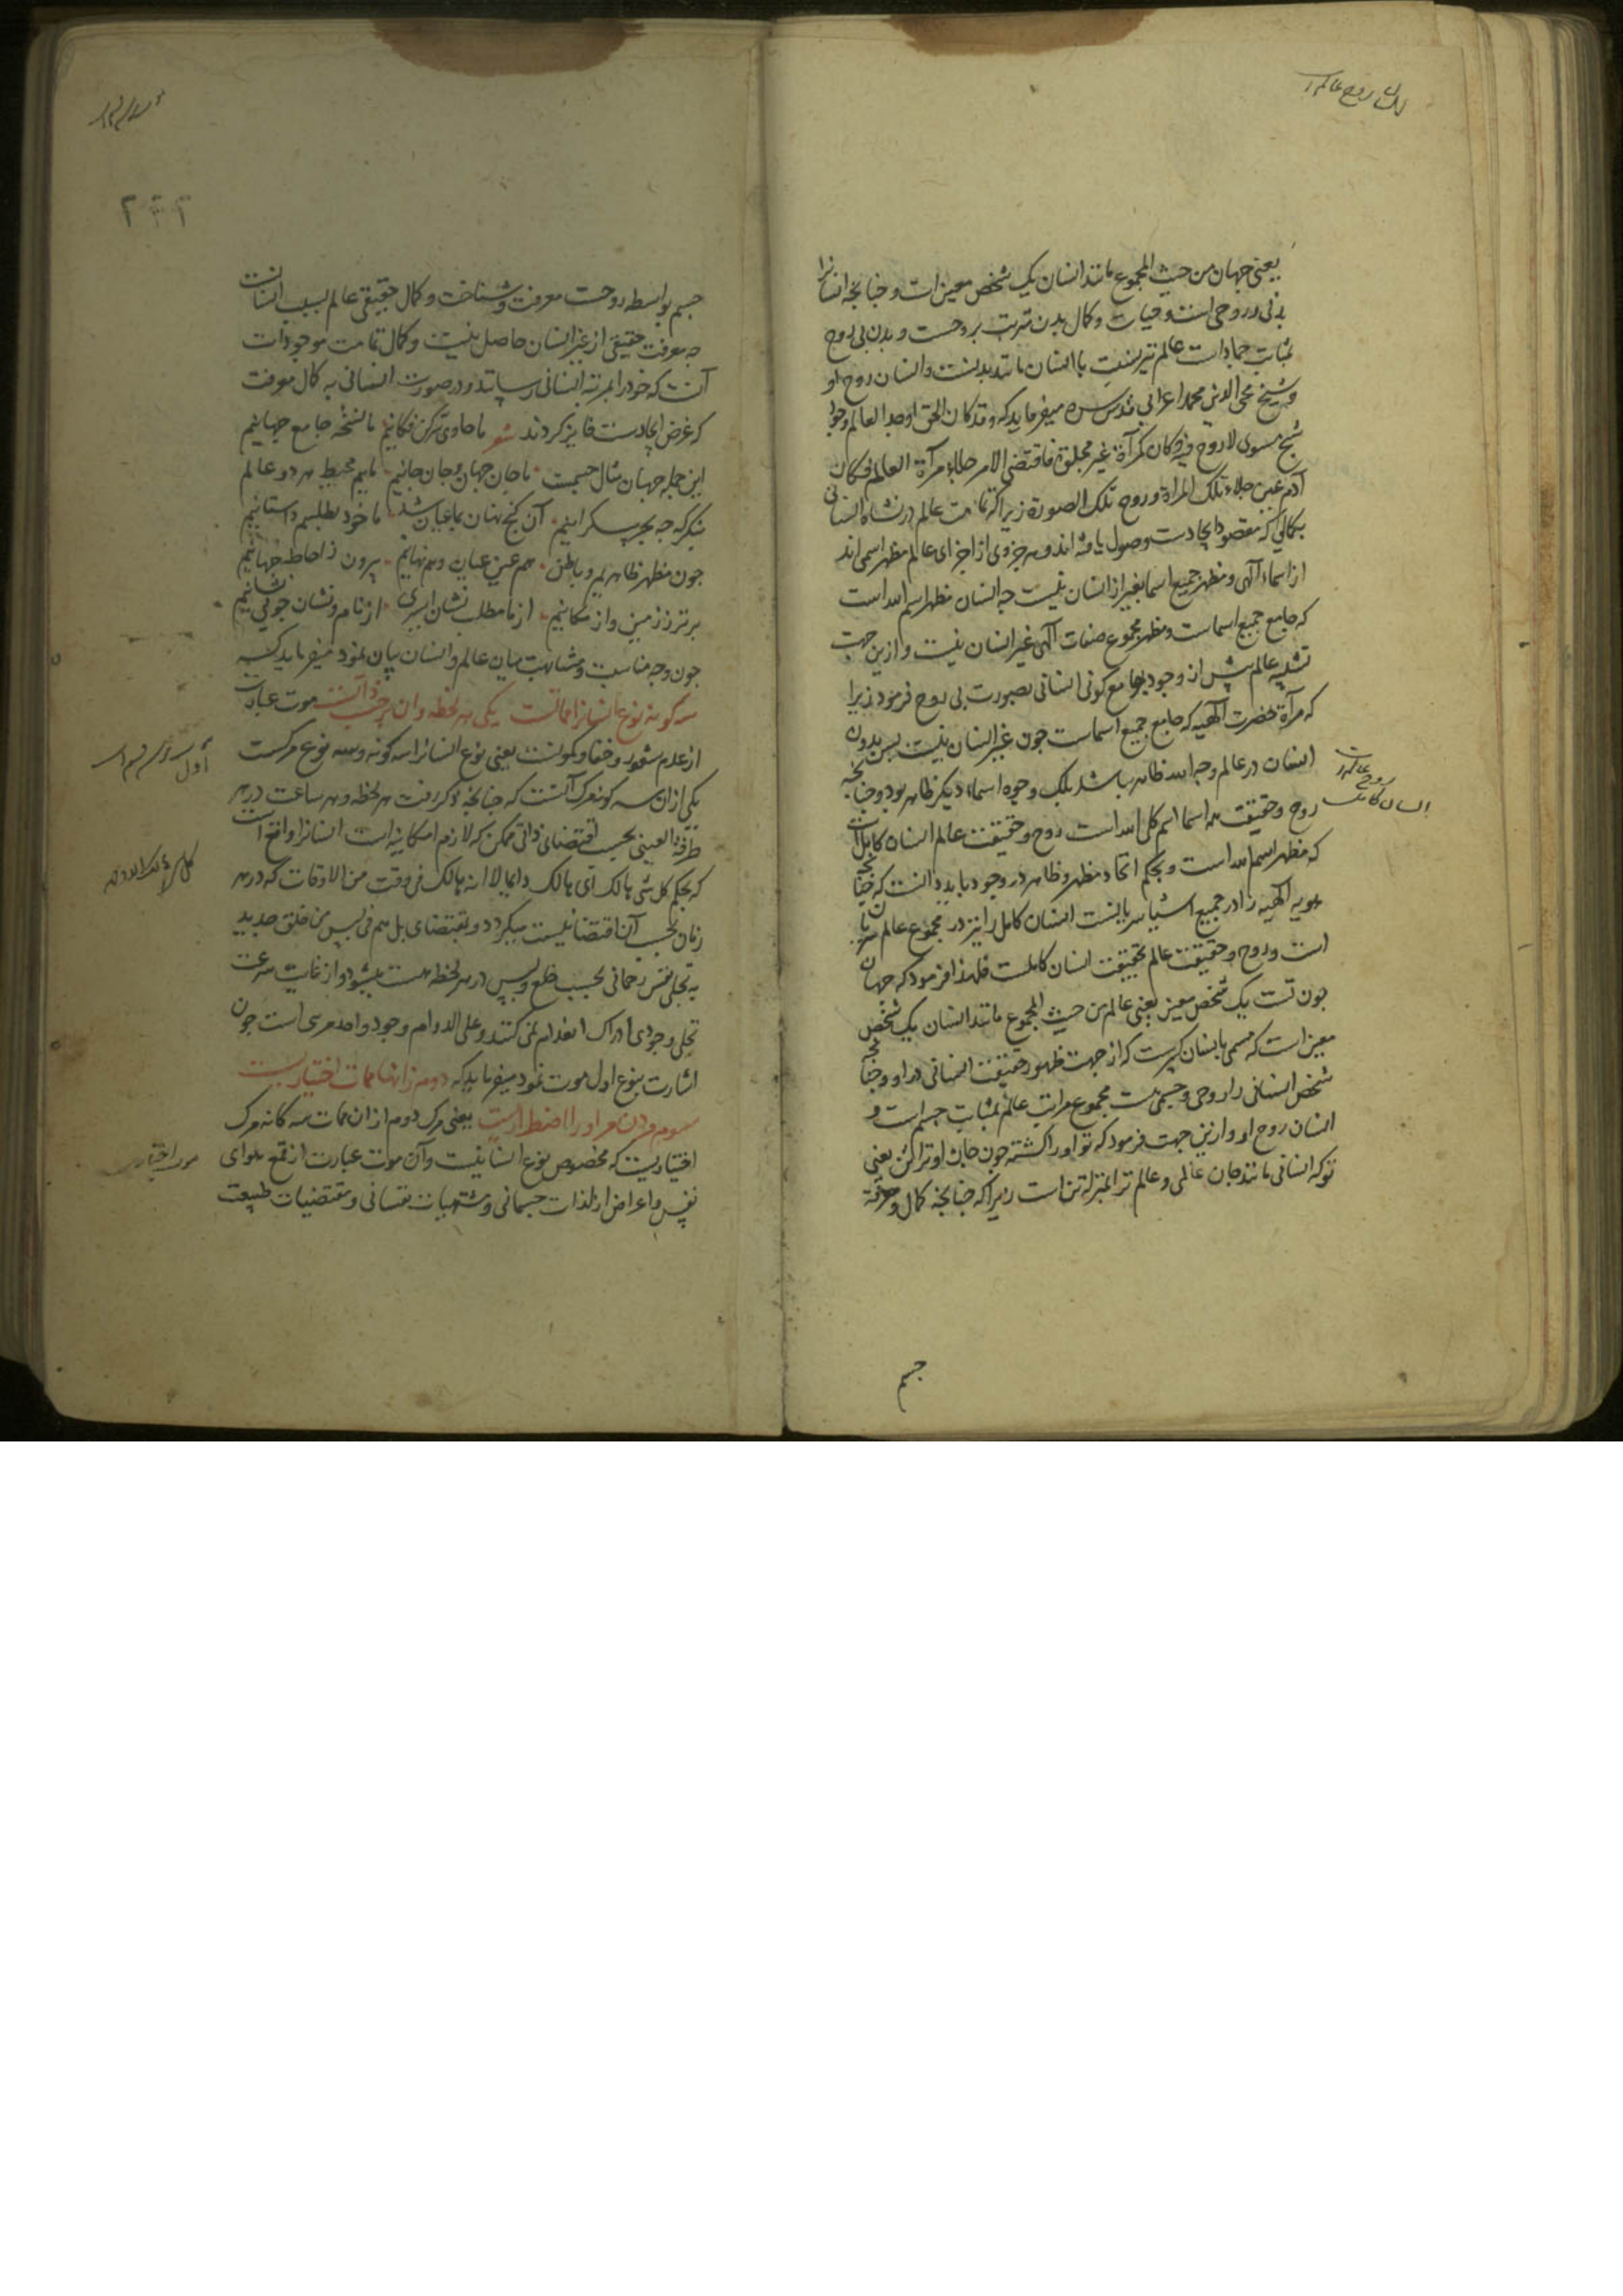 یعنی جهان من حیث المجموع مانند انسان یک شخص معین است و چنانچه انسانرا
بدنی و روحی است و حیات و کمال بدن مترتب بر روحست و بدن بی روح
بمثابت جماد است عالم نیز نسبت با انسان مانند بدنست و انسان روح او
و شیخ محی الدین محمد اعرابی قدس سره میفرماید که و قد کان الحق اوجد العالم وجود
شبح مسوی لا روح فیه و کان کمرآة غیر مجلوة فاقتضی الامر جلاء مرآة العالم فکان
آدم عین جلاء تلک المرآة و روح تلک الصورة زیرا که تمامت عالم در نشاه انسانی
بکمالی که مقصود ایجادست وصول یافته اند و هر جزوی از اجزای عالم مظهر اسمی اند
از اسماء آلهی و مظهر جمیع اسما بغیر از انسان نیست چه انسان مظهر اسم الله است
که جامع جمیع اسماست و مظهر مجموع صفات آلهی غیر انسان نیست و ازین جهت
تشبیه عالم پیش از وجود جامع کونی انسانی بصورت بی روح فرمود زیرا
که مرآة حضرت آلهیه که جامع جمیع اسماست چون غیر انسان نیست پس بدون
انسان در عالم وجه الله ظاهر نباشد بلک وجوه اسماء دیگر ظاهر بود و چنانچه
روح و حقیقت همه اسما اسم کل الله است روح و حقیقت عالم انسان کامل است
که مظهر اسم الله است و بحکم اتحاد مظهر و ظاهر در وجود باید دانست که چنانچه
هویه الهیه را در جمیع اشیا سریانست انسان کامل را نیز در مجموع عالم سریان
است و روح و حقیقت عالم بحقیقت انسان کاملست فلهذا فرمود که جهان
چون تست یک شخص معین یعنی عالم من حیث المجموع مانند انسان یک شخص
معین است که مسمی بانسان کبیرست که از جهت ظهور حقیقت انسانی در او و چنانچه
شخص انسانی را روحی و جسمی هست مجموع مراتب عالم بمثابت جسم است و
انسان روح او و ازین جهت فرمود که تو او را گشته چون جان او ترا تن یعنی
تو که انسانی مانند جان عالمی و عالم ترا بمنزله تن است زیرا که چنانچه کمال و معرفة
جسم
روح عالم
انسان کامل
جسم بواسطه روحست معرفت و شناخت و کمال حقیقی عالم بسبب انسانست
چه معرفت حقیقی از غیر انسان حاصل نیست و کمال تمامت موجودات
آنست که خود را بمرتبه انسانی رسانند و در صورت انسانی به کمال معرفت
که غرض ایجادست فایز گردند شعر ما حاوی سر کن فکانیم ما نسخه جامع جهانیم
این جمله جهان مثال جسمست ما جان جهان و جان جانیم ماییم محیط هر دو عالم
بنگر که چه بحر بیکرانیم آن گنج نهان بما عیان شد ما خود بطلسم داستانیم
چون مظهر ظاهریم و باطن هم عین عیان و هم نهانیم بیرون ز احاطه جهانیم
برتر ز زمین و از مکانیم از ما مطلب نشان اسیری از نام و نشان چو بی نشانیم
چون وجه مناسبت و مشابهت میان عالم و انسان بیان نمود میفرماید که
سه گونه نوع انسانرا مماتست یکی هر لحظه وان بر حسب ذاتست موت عبارت
از عدم شعور و خفا و کونست یعنی نوع انسانرا سه گونه و سه نوع مرگست
یکی ازان سه گونه مرگ آنست که چنانچه ذکر رفت هر لحظه و هر ساعت در هر
طرفة العینی بحسب اقتضای ذاتی ممکن که لازم امکانیه است انسانرا واقع است
که بحکم کل شی هالک ای هالک دایما لا انه هالک فی وقت من الاوقات که در هر
زمان بحسب آن اقتضا نیست میگردد و بمقتضای بل هم فی لبس من خلق جدید
به تجلی نفس رحمانی بحسب خلع و لبس در هر لحظه هست میشود و از غایت سرعت
تجلی وجودی ادراک انعدام نمی کنند و علی الدوام وجود واحد مرئی است چون
اشارت بنوع اول موت نمود میفرماید که دوم زانها ممات اختیاریست
سیوم مردن مر او را اضطراریست یعنی مرگ دوم ازان ممات سه گانه مرگ
اختیاریست که مخصوص نوع انسانیست و آن موت عبارت از قمع هوای
نفس و اعراض از لذات جسمانی و مشتهیات نفسانی و مقتضیات طبیعت
موت اختیاری